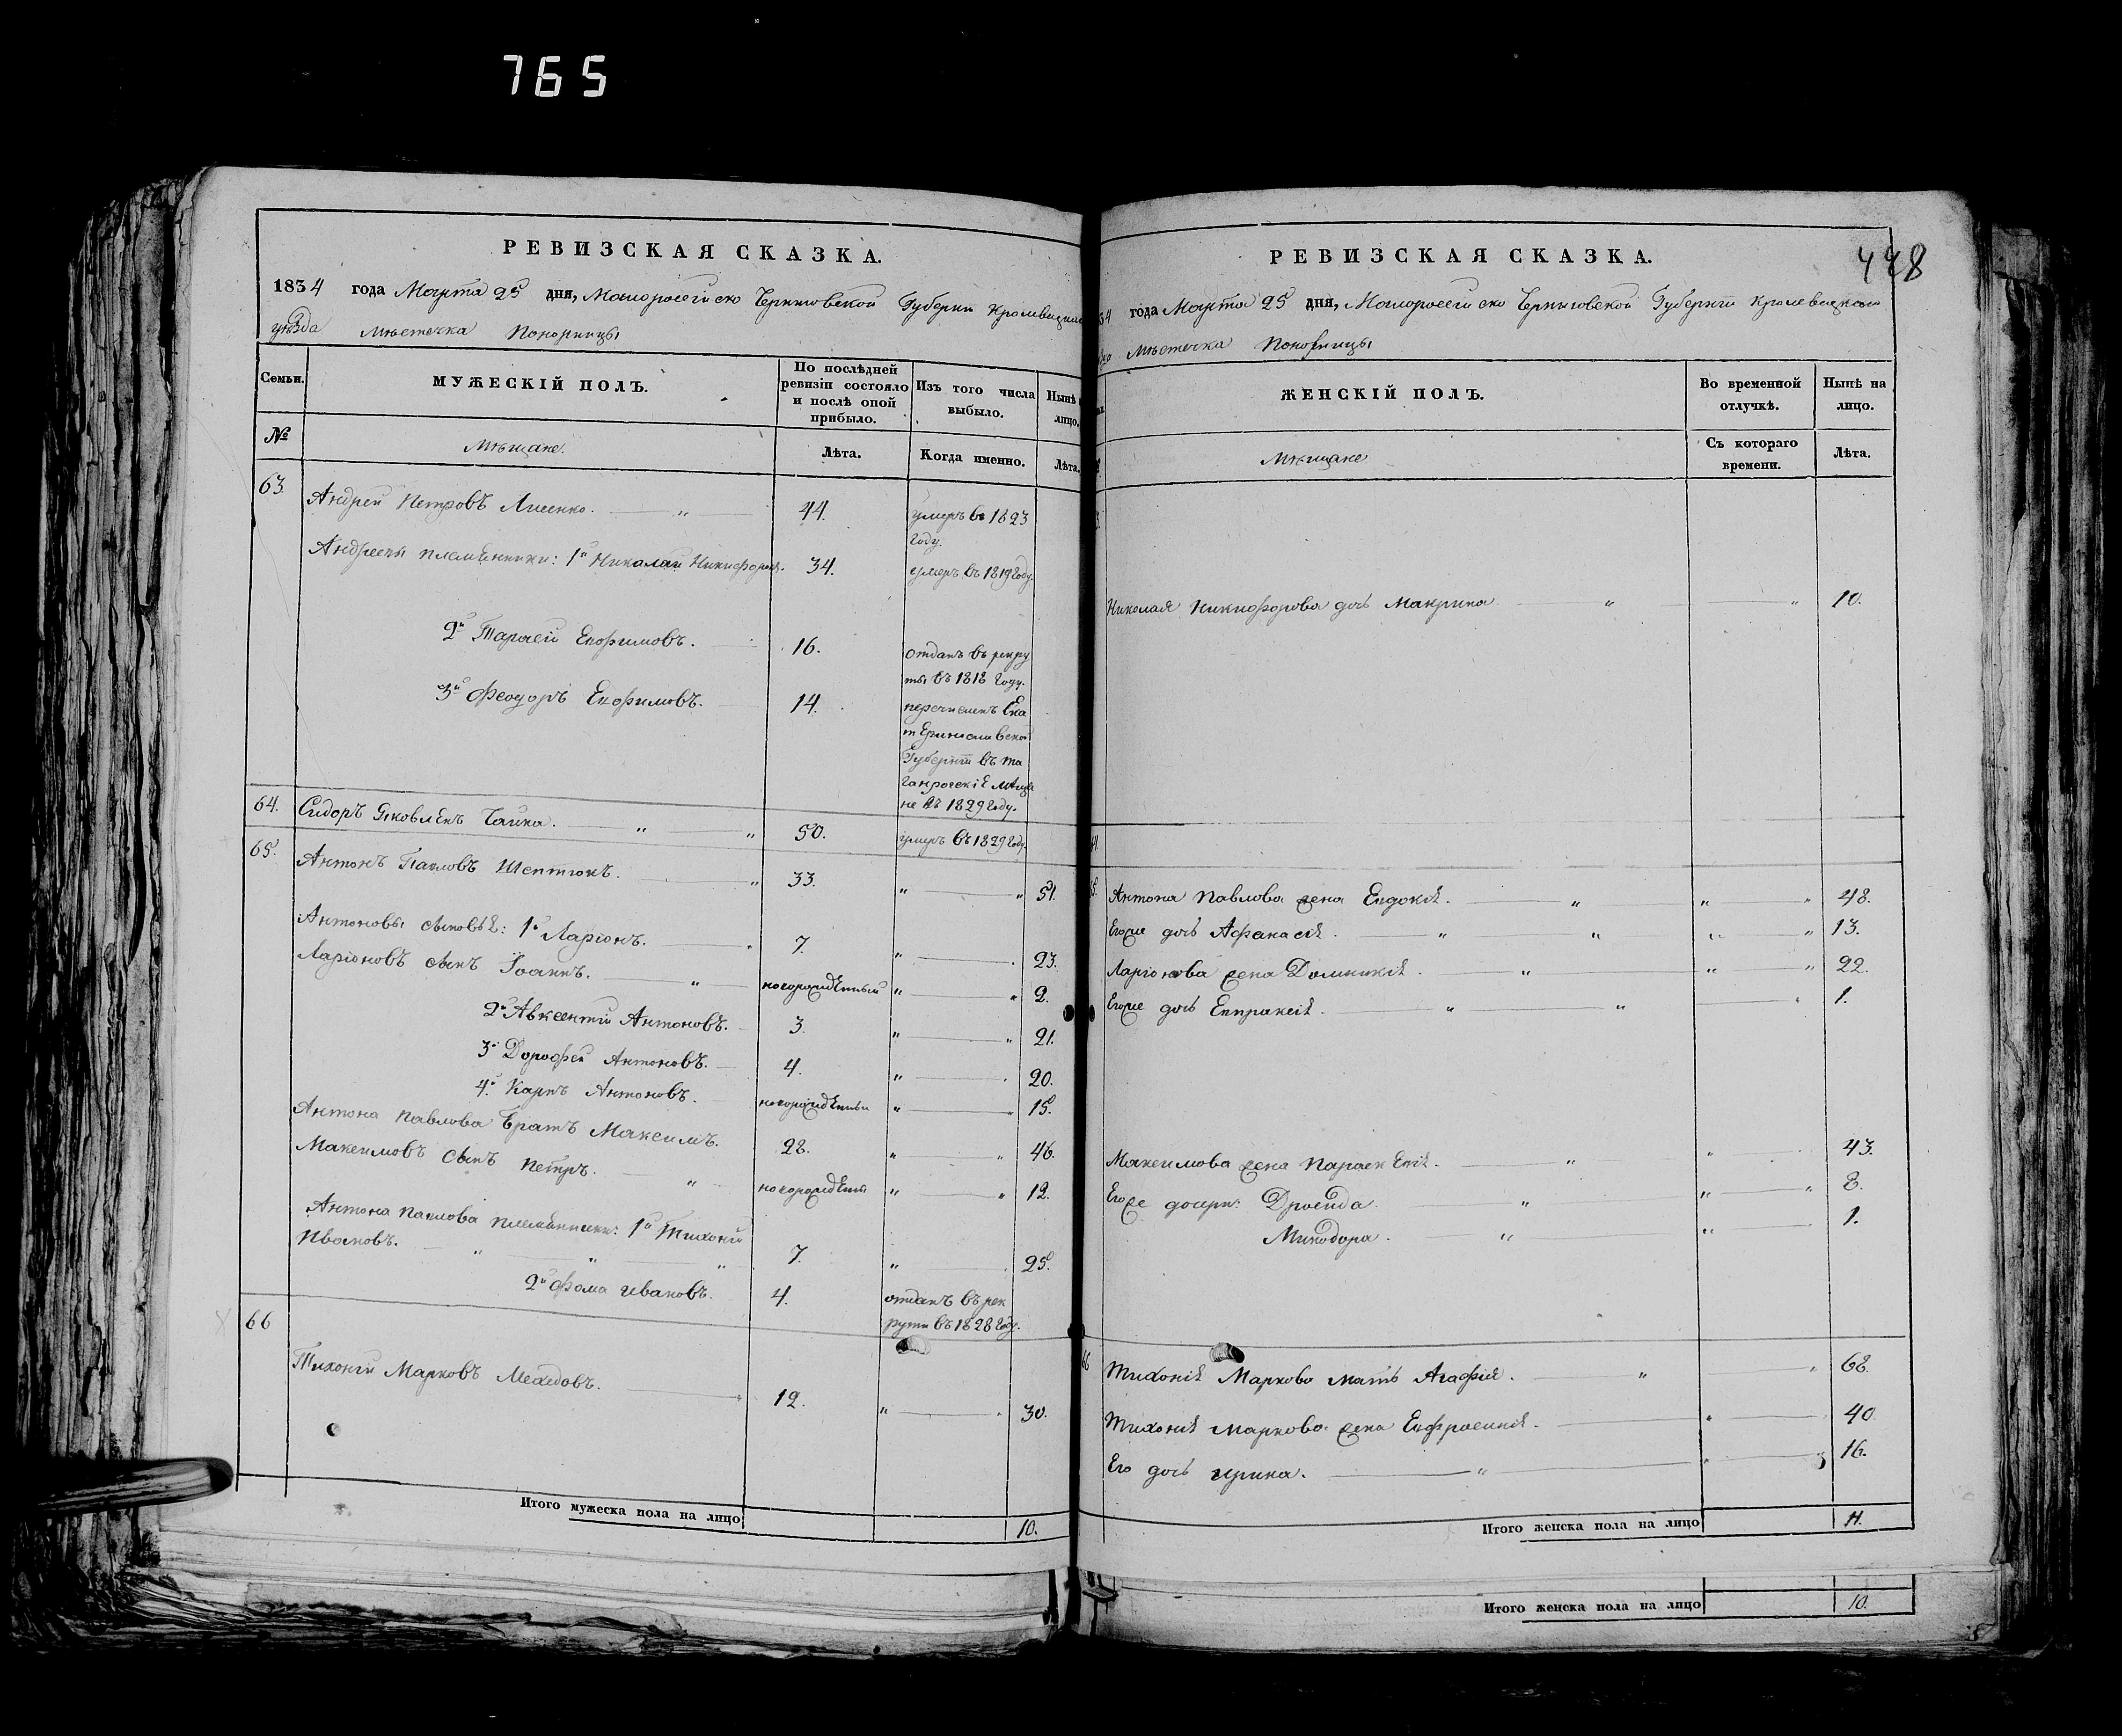 765
РЕВИЗСКАЯ СКАЗКА.
1834 года Марта 25 дня, Малоросейско Черниговской Губерни Кролевецкаго
уѣзда Мѣстечка Понорницы
Семьи. МУЖЕСКІЙ ПОЛЪ. По послѣдней ревизіи состояло и послѣ оной прибыло. Изъ того числа выбыло. Нынѣ лицо.
№ Мѣщане. Лѣта. Когда именно. Лѣта.
63. Андрей Петровъ Лисенко. 44. умеръ въ 1823
году.
Андреечи племѣнники: 1й Николай Никифоровъ. 34. умеръ въ 1819 году.
2й Тарасей Ефимовъ. 16. отданъ въ рекру
ты въ 1818 году.
3й Феодоръ Ефимовъ. 14. перечисленъ Ека
тЕринославской
Губерніи въ та
ганрогскіЕ мѣща
не въ 1829 году.
64. Сидоръ Яковлевъ Чайка. 50. умеръ въ 1829 году.
65. Антонъ Павловъ Шептюкъ. 33. 51.
Антоновы сыновья: 1й Ларіонъ. 7. 23.
Ларіоновъ сынъ Іоаннъ. новорожденный 2.
2й Авксентій Антоновъ. 3. 21.
3й Дорофей Антоновъ. 4. 20.
4й Карпъ Антоновъ. новорожденный 15.
Антона Павлова братъ Максимъ. 28. 46.
Максимовъ сынъ Петръ. новорожденный 12.
Антона Павлова племѣнники: 1й Тихоній
Ивановъ. 7. 25.
2й Фома Ивановъ. 4. отданъ въ рек
руты въ 1828 году.
66 Тихоній Марковъ Мехедовъ. 12. 30.
Итого мужеска пола на лицо 10.
448
РЕВИЗСКАЯ СКАЗКА.
34 года Марта 25 дня, Малоросейско Черниговской Губерніи Кролевецкаго
Мѣстечка Понорницы
ЖЕНСКІЙ ПОЛЪ. Во временной отлучкѣ. Нынѣ на лицо.
Мѣщане Съ котораго времени. Лѣта.
Николая Никифорова дочь Макрина 10.
65. Антона Павлова жена Евдокія. 48.
Егоже дочь Афанасія. 13.
Ларіонова жена Домникія. 22.
Егоже дочь Евпраксія. 1.
Максимова жена Параскевія. 43.
Егоже дочери: Дросида. 8.
Минодора. 1.
66 Тихонія Маркова мать Агафія. 68.
Тихонія Маркова жена Евфросинія. 40.
Его дочь Ирина. 16.
Итого женска пола на лицо 11.
Итого женска пола на лицо 10.